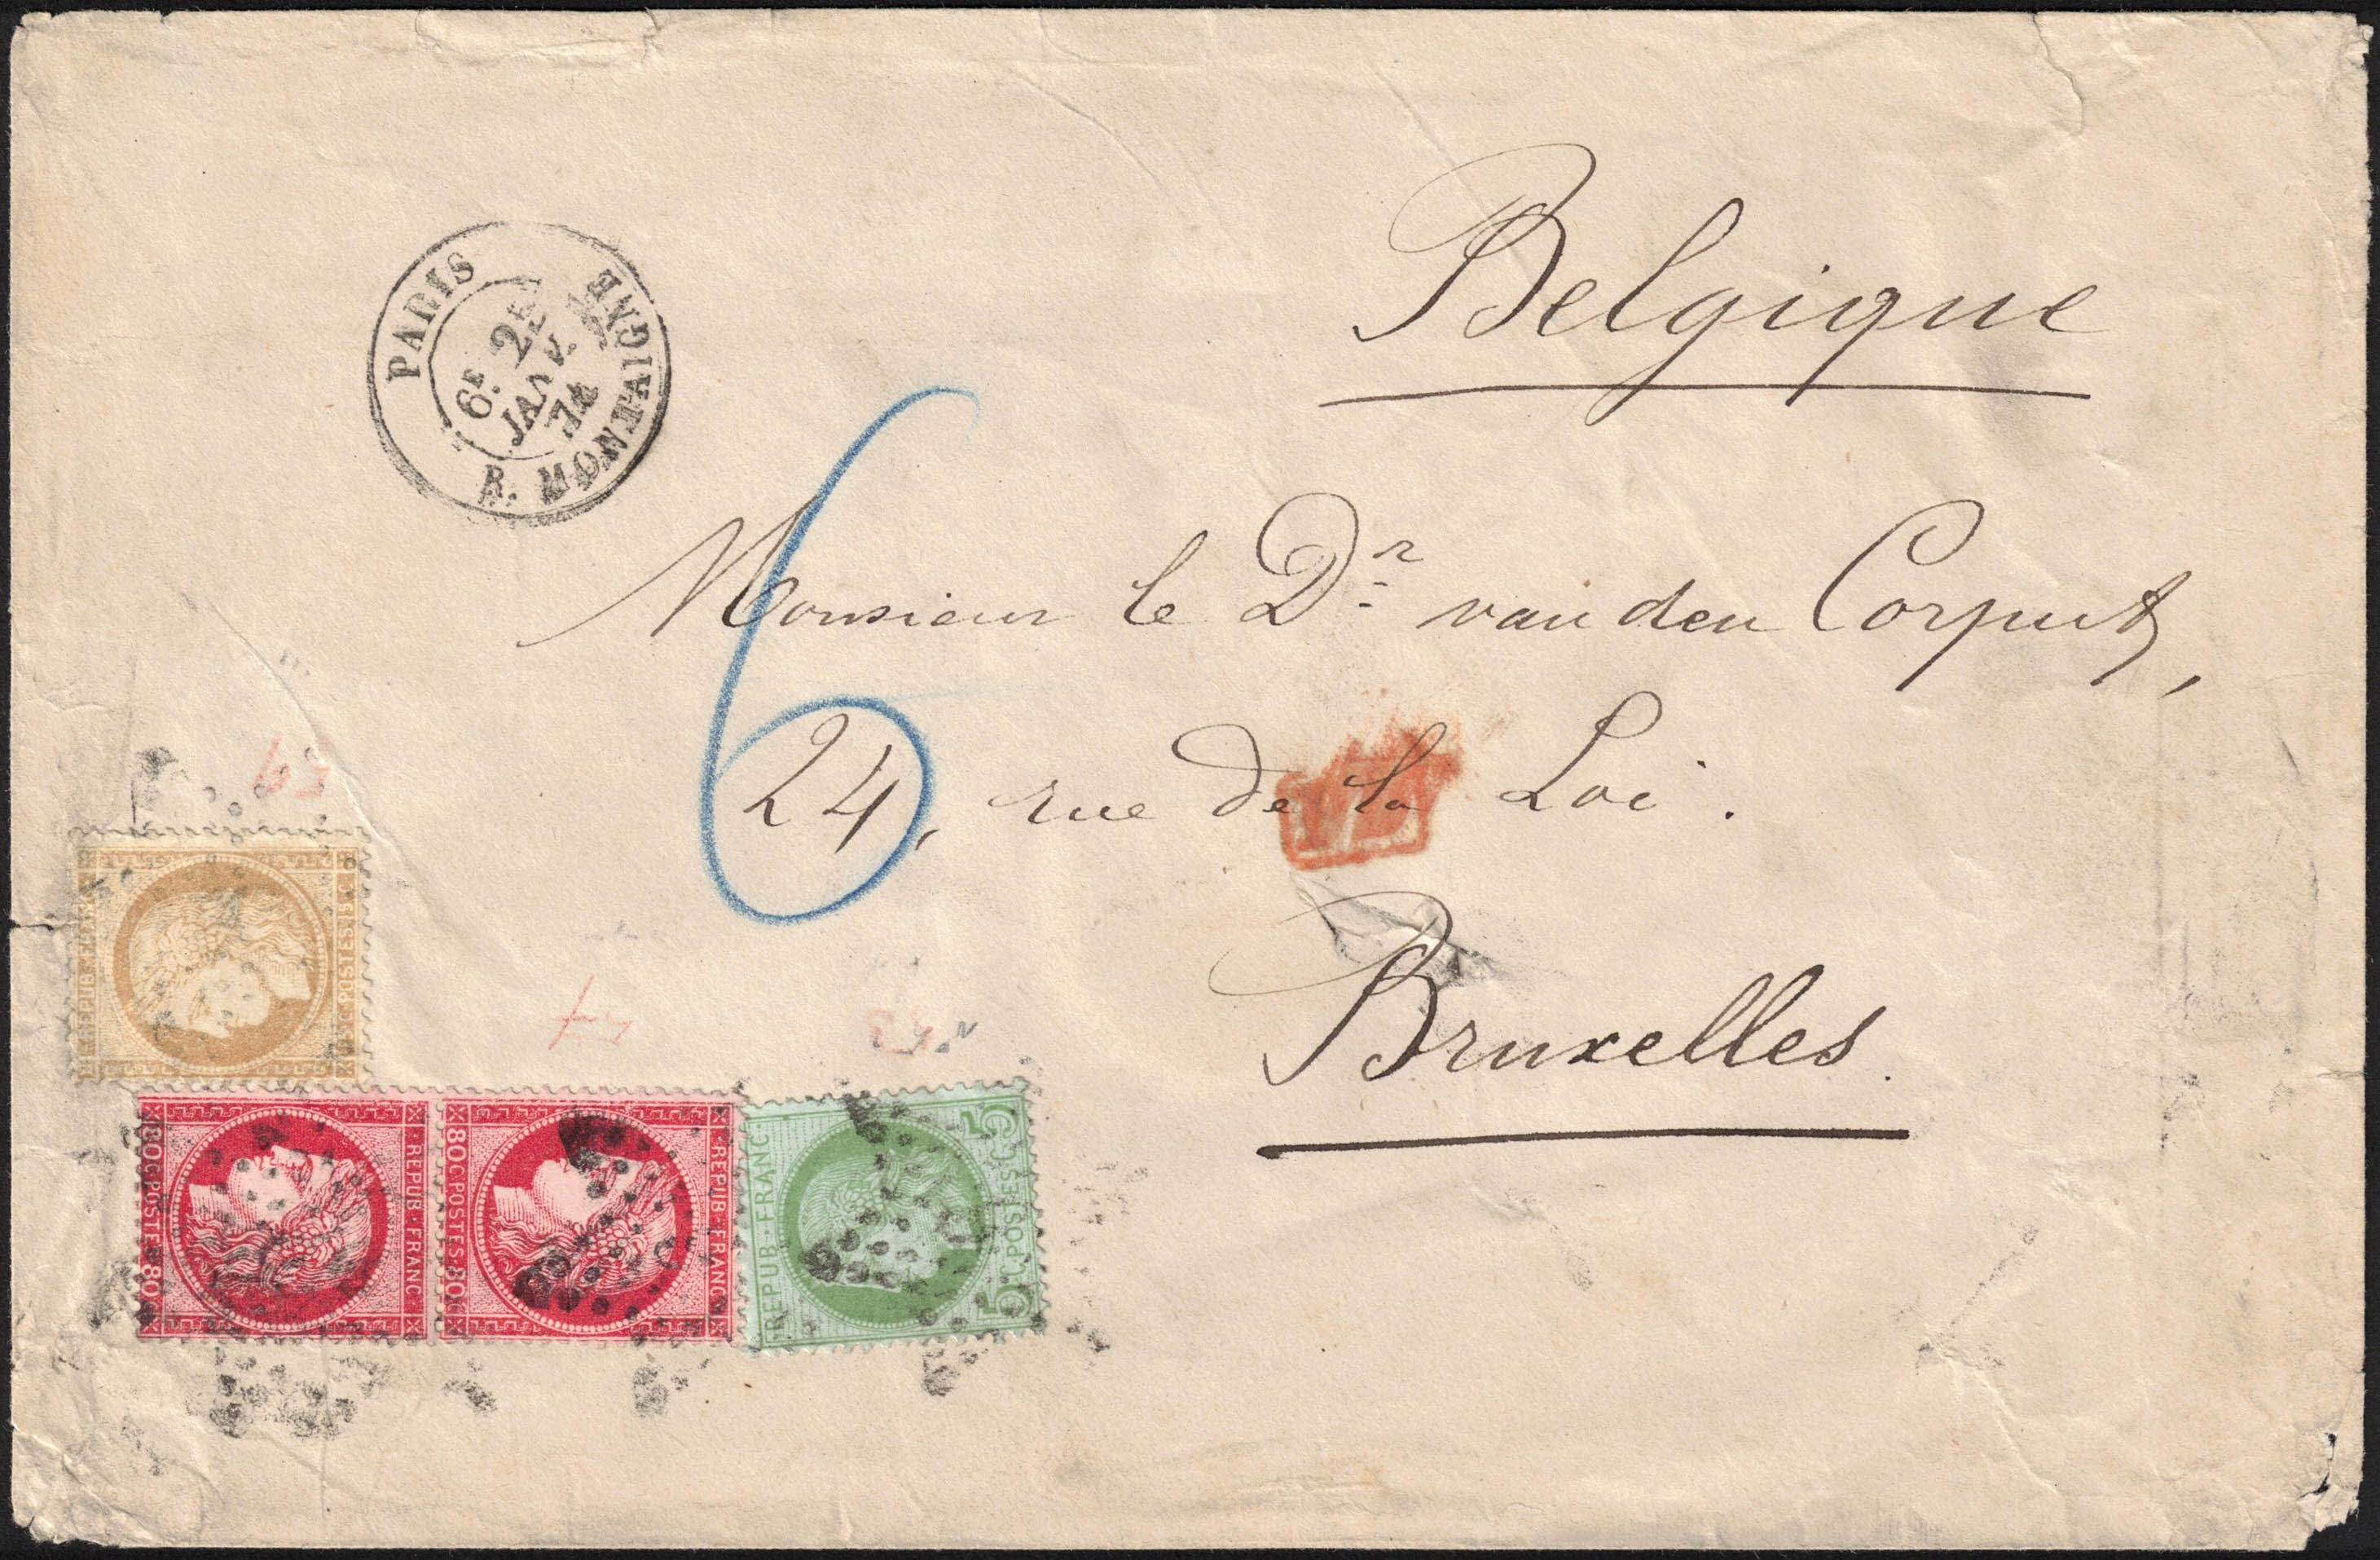 Belgique
PARIS
R. MONTAIGNE
6E
JANV.
74
6
Monsieur le Dr van den Corput,
24, rue de la Loi.
Bruxelles
REPUB FRANC
15 C. POSTES 15
80 C POSTES 80
REPUB FRANC
80 C POSTES 80
REPUB FRANC
REPUB FRANC
5 C. POSTES 5